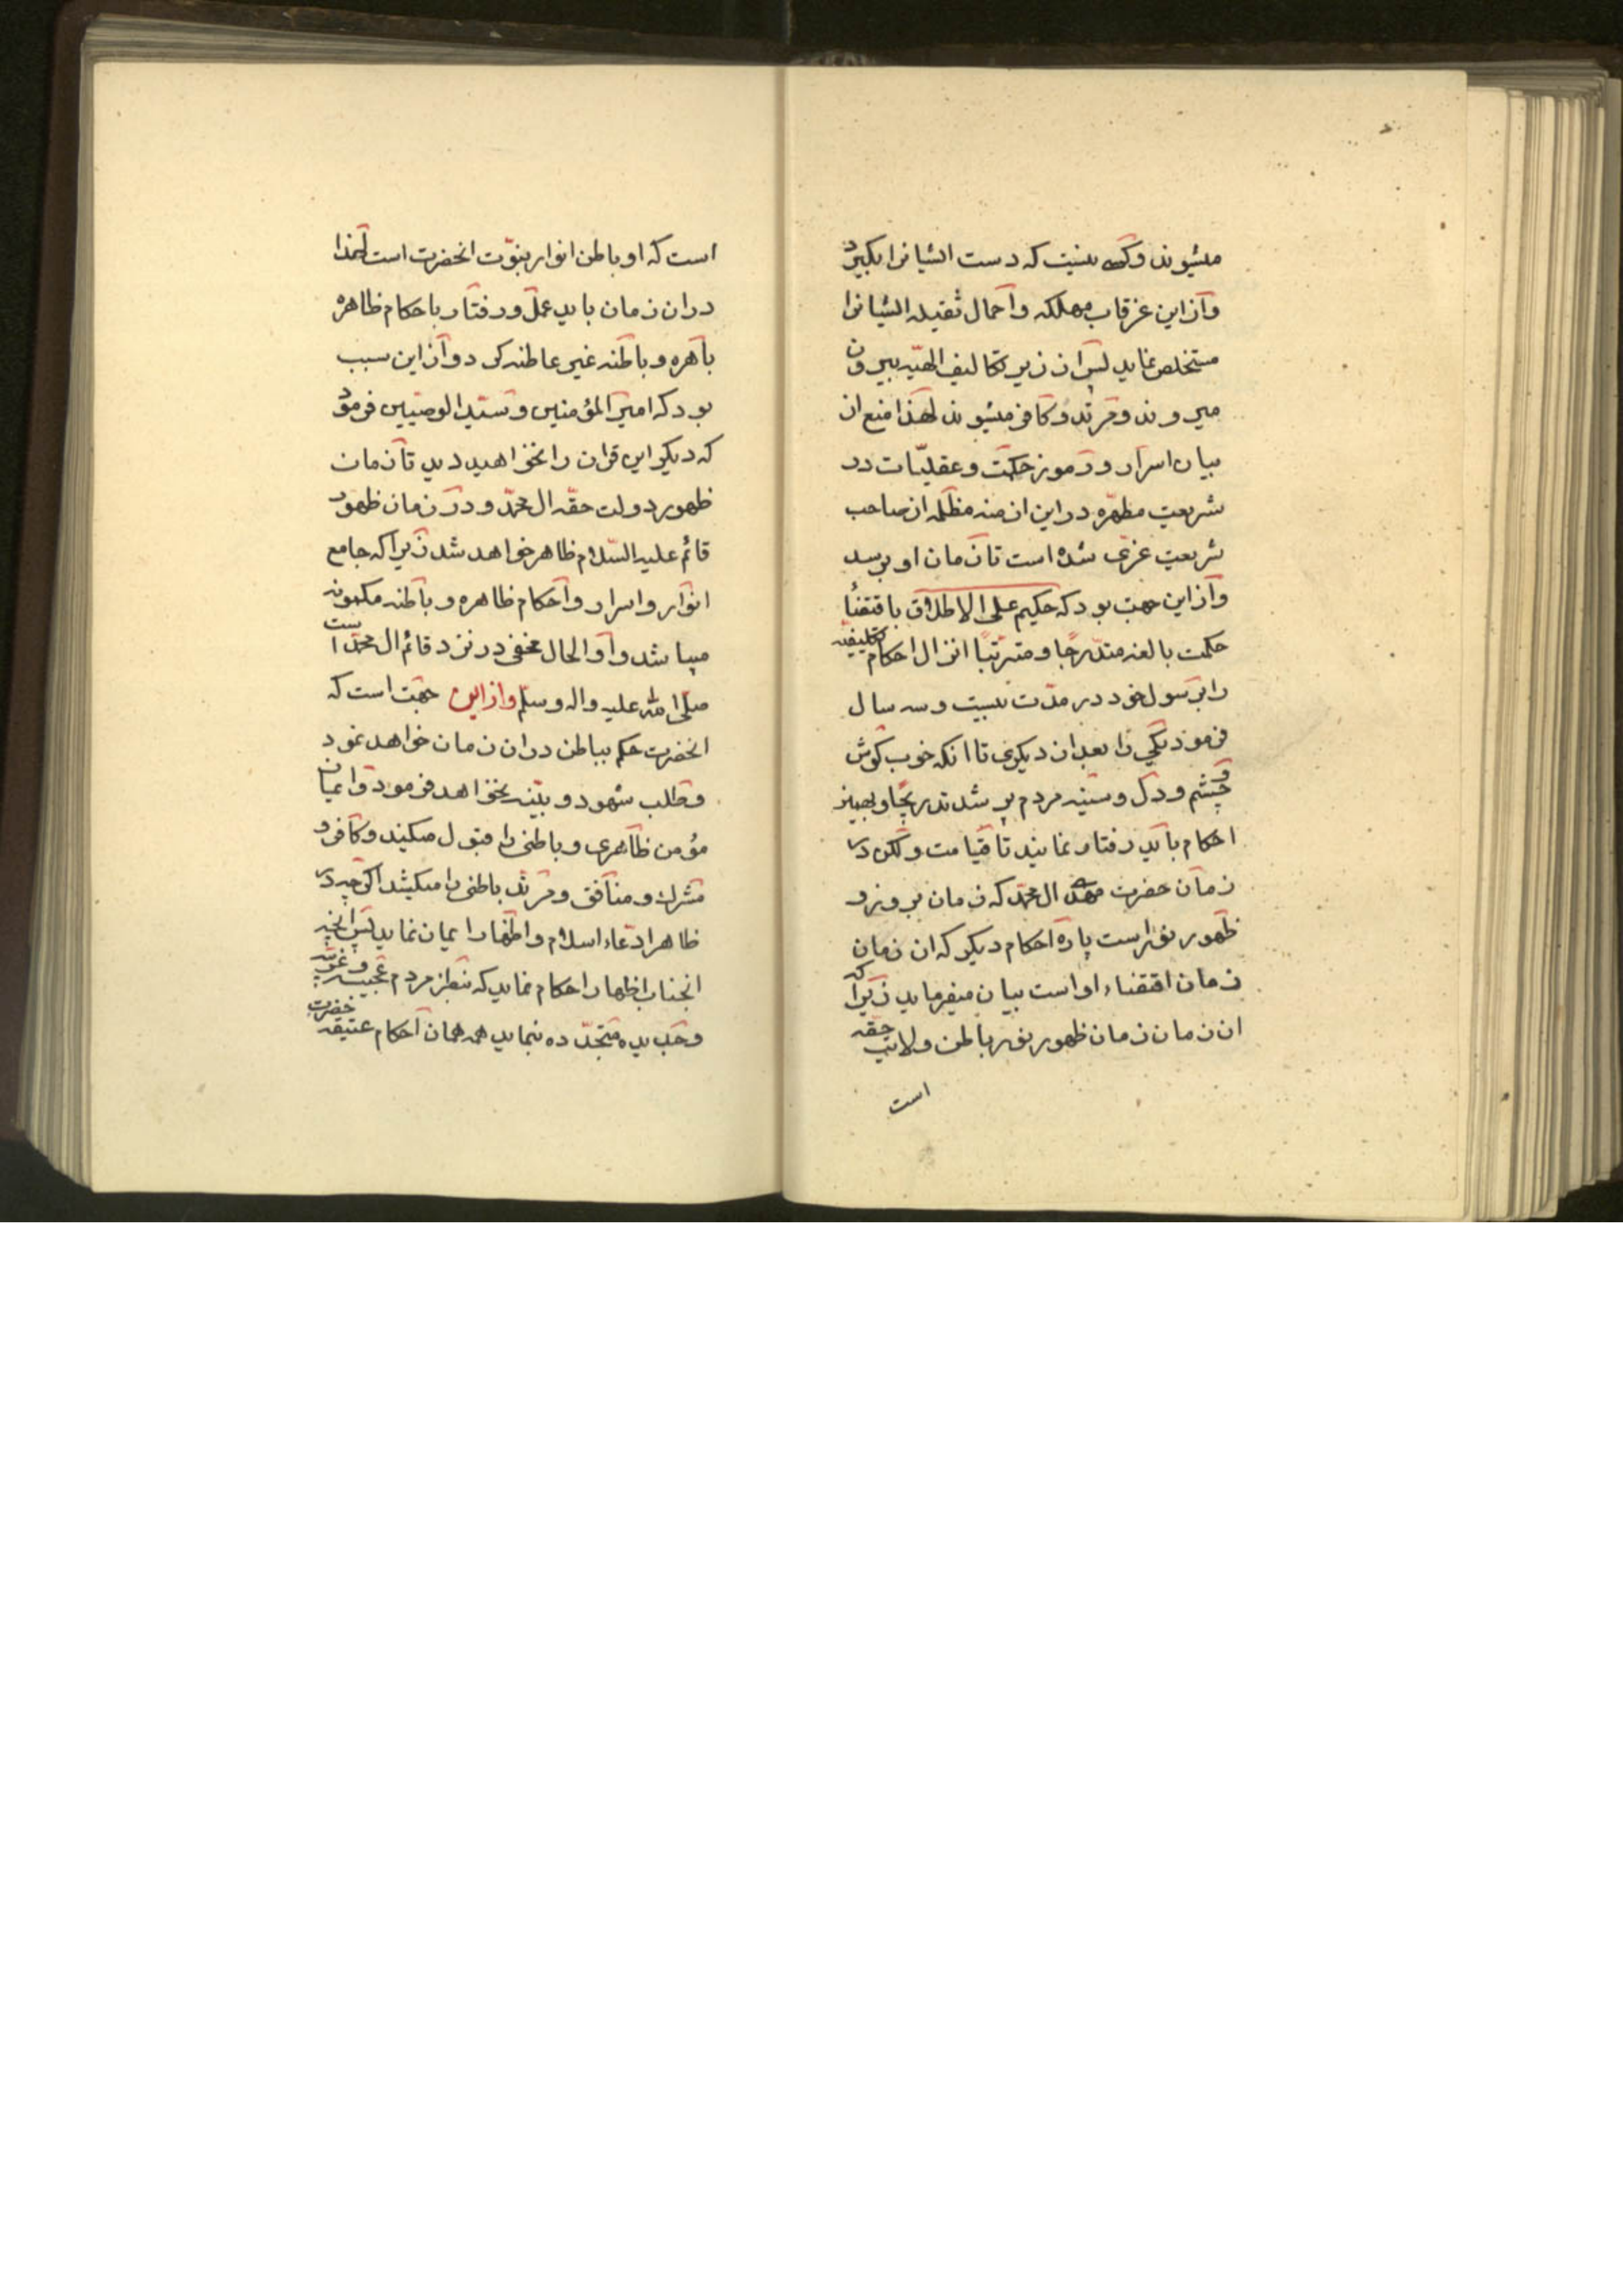 میشوند و کسی نیست که دست ایشانرا بکیرد
و از این غرقاب مهلکه و احمال ثقیله ایشانرا
مستخلص نماید پس از زیر تکالیف الهیّه بیرون
میروند و مرتد و کافر میشوند لهذا منع از
بیان اسرار و رموز حکمت و عقلیّات در
شریعت مطهّره در این ازمنه مظلمه از صاحب
شریعت غرّی شده است تا زمان او برسد
و از این جهت بود که حکیم علی الاطلاق باقتضای
حکمت بالغه متدرجا و مترتبا انزال احکام تکلیفیه
را برسول خود در مدّت بیست و سه سال
فرمود یکی را بعد از دیکری تا انکه خوب کوش
و چشم و دل و سینه مردم پر شد تدریجا و بهمین
احکام باید رفتار نمایند تا قیامت و لکن در
زمان حضرت مهدی ال محمّد که زمان بروز و
ظهور نور است پاره احکام دیکر که ان زمان
زمان اقتضاء او است بیان میفرماید زیرا که
ان زمان زمان ظهور نور باطن ولایت حقه
است
است که او باطن انوار نبوّت انحضرت است لهذا
در ان زمان باید عمل و رفتار باحکام ظاهره
باهره و باطنه غیر عاطنه کرد و از این سبب
بود که امیر المؤمنین و سید الوصیین فرمود
که دیکر این قران را نخواهید دید تا زمان
ظهور دولت حقّه ال محمّد و در زمان ظهور
قائم علیه السّلام ظاهر خواهد شد زیرا که جامع
انوار و اسرار و احکام ظاهره و باطنه مکنونه
میباشد و او الحال مخفی در نزد قائم ال محمّد است
صلّی الله علیه واله وسلّم و از این جهت است که
انحضرت حکم بباطن در ان زمان خواهد نمود
و طلب شهود و بیّنه نخواهد فرمود و ایمان
مؤمن ظاهری و باطنی را قبول میکند و کافر و
مشرک و منافق و مرتد باطنی را میکشد اکرچه در
ظاهر ادّعاء اسلام و اظهار ایمان نماید پس انچه
انجناب اظهار احکام نماید که بنظر مردم عجیب و غریب
و جدیده متجدّده بنماید همه همان احکام عتیقه حضرت